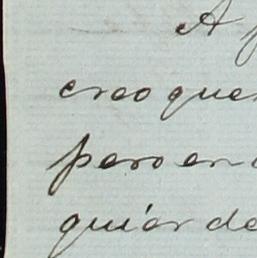 A
creo que
pero en
quiér de